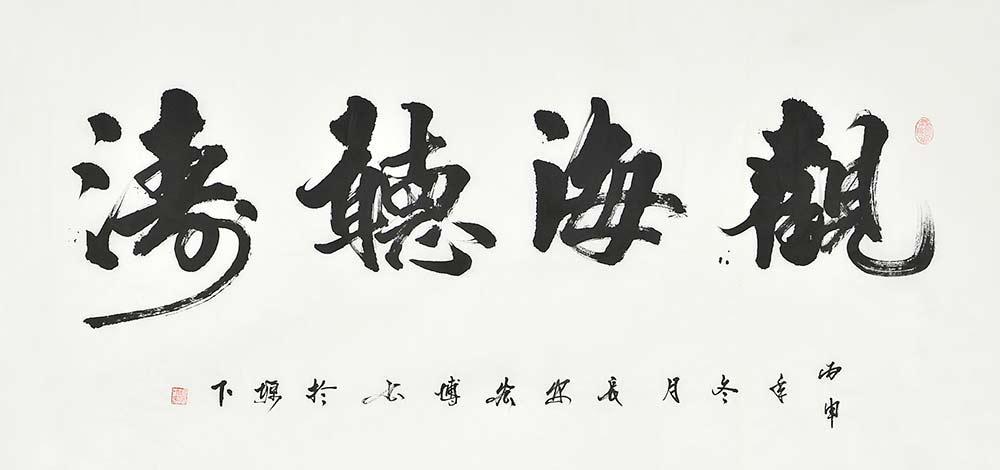 觀海聽濤
丙申年冬月長安博书於下